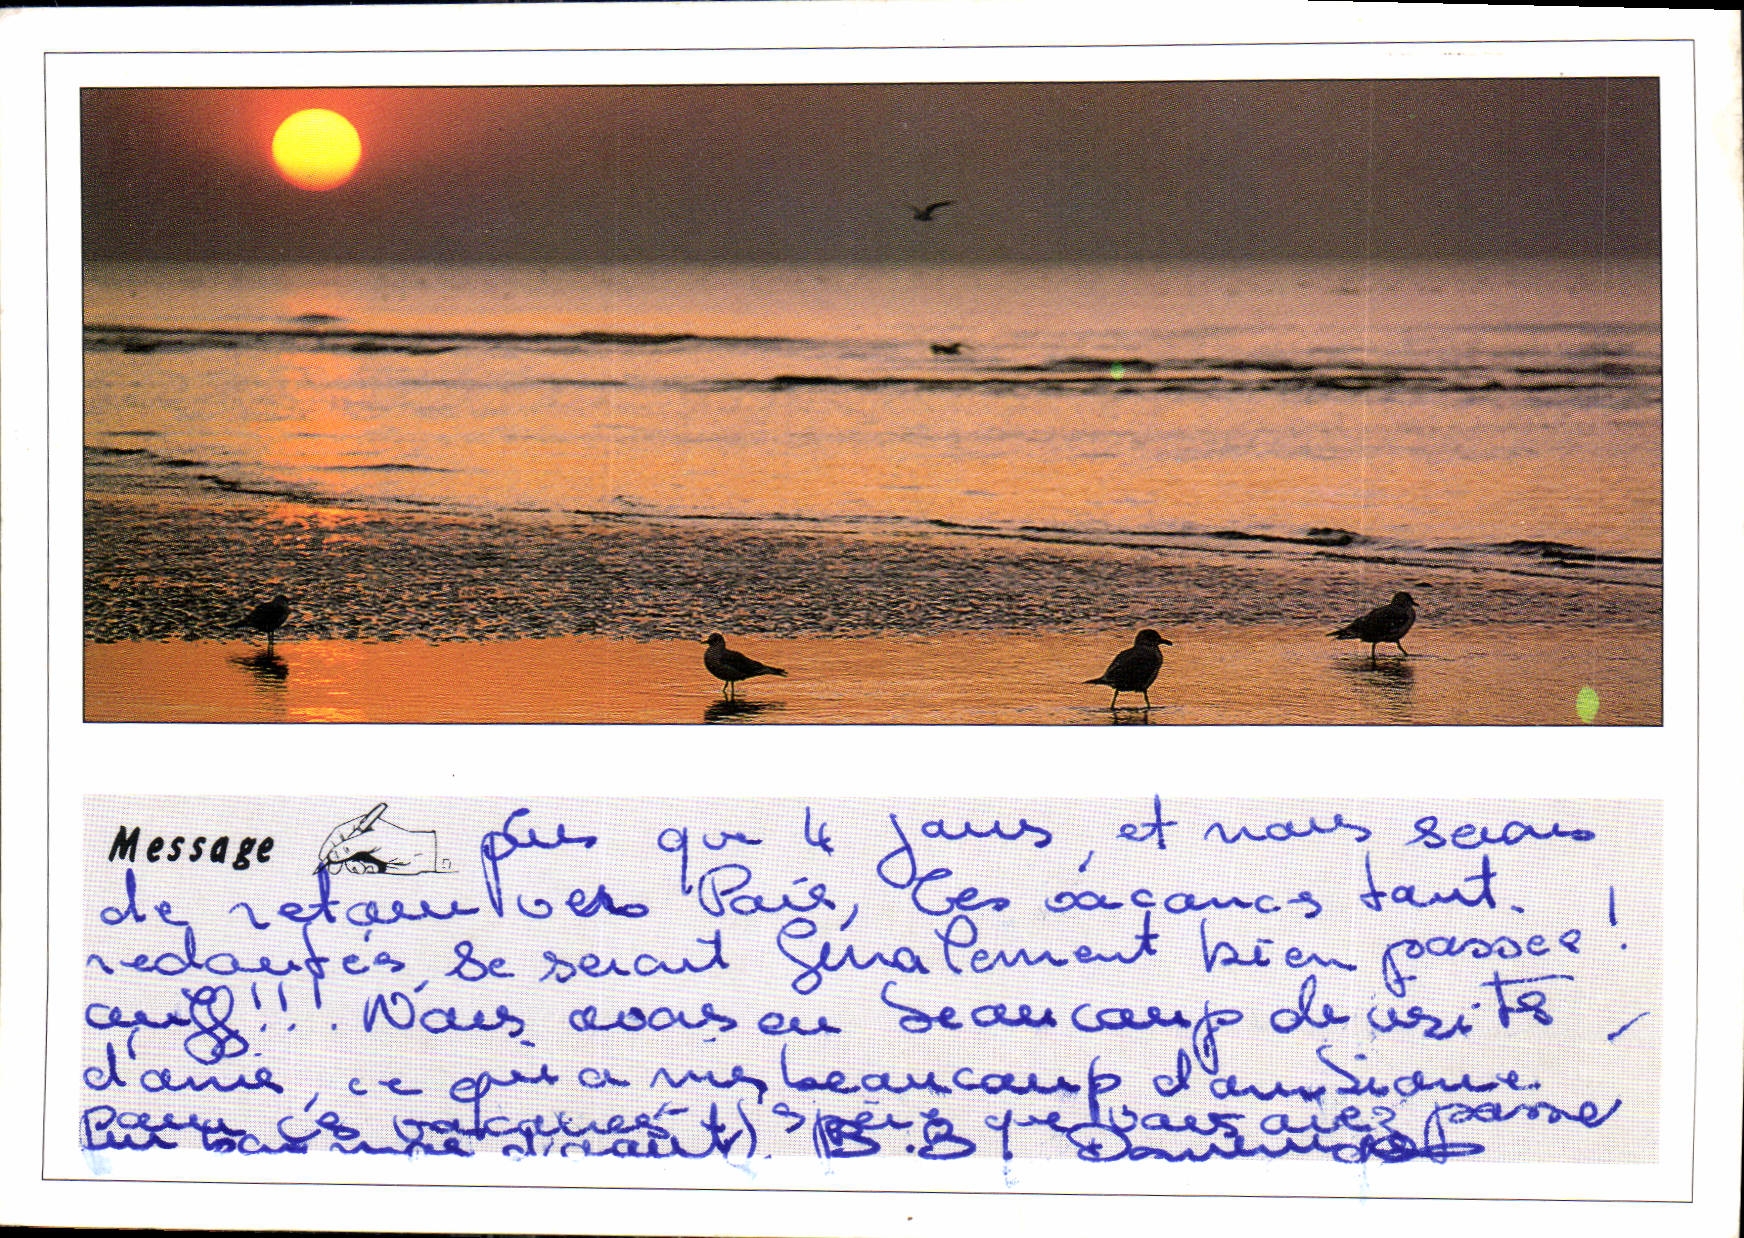 Message plus que 4 jours, et nous serons
de retour vers Paris, les vacances tant
redoutées, se seront finalement bien passées !
ouff!!!. Nous avons eu beaucoup de visites
d'amis, ce qui a mis beaucoup d'ambiance.
Pour ces vacances. J'espère que vous avez passé
un bon mois d'août. B.B.! Dominique